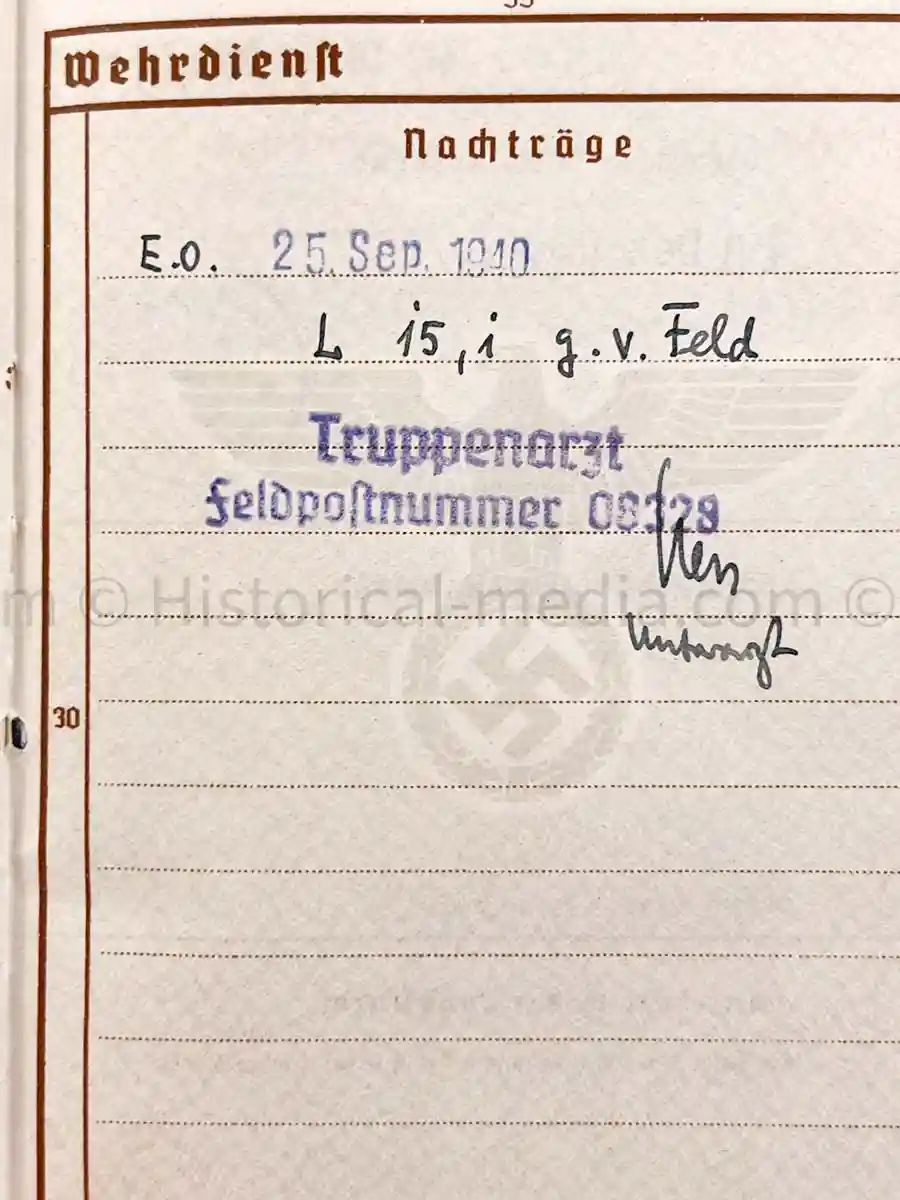 Wehrdienst
Nachträge
E.O. 25. Sep. 1940
L 15,i g.v. Feld
Truppenarzt
Feldpostnummer 08328
© Historical-media.com ©
Unterarzt
30